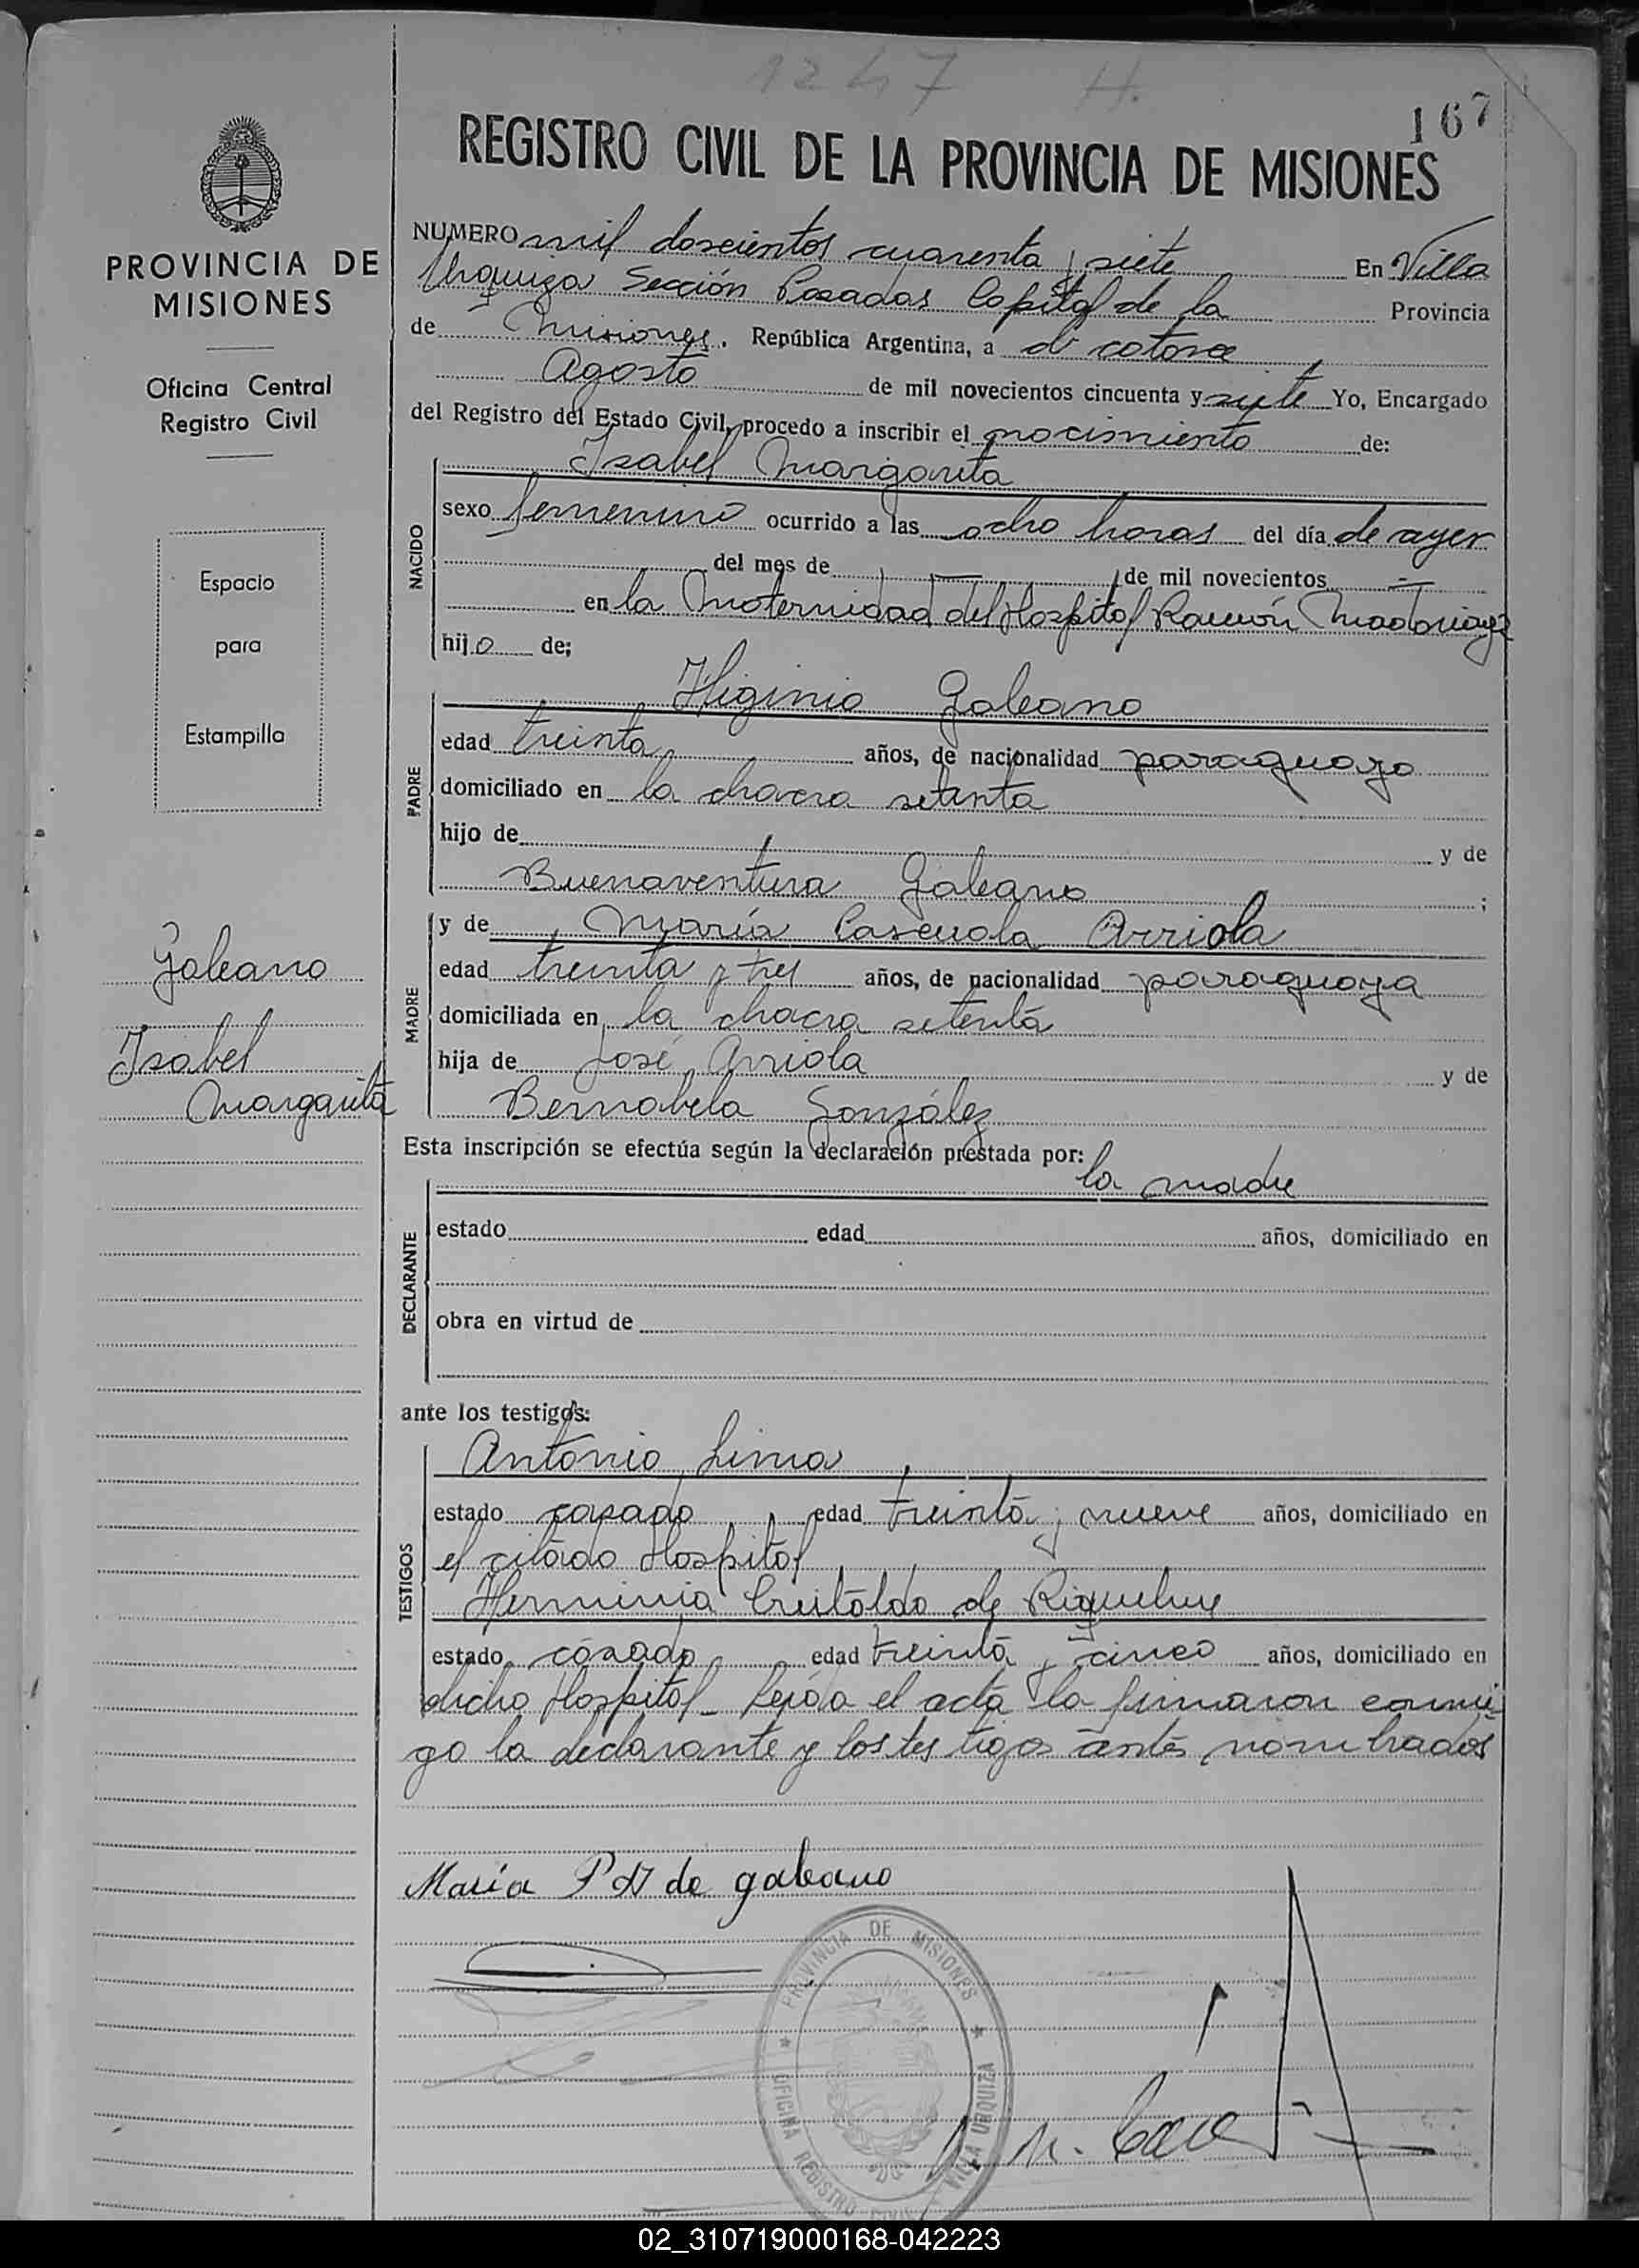 1247 H.
167
REGISTRO CIVIL DE LA PROVINCIA DE MISIONES
PROVINCIA DE
MISIONES
Oficina Central
Registro Civil
Espacio
para
Estampilla
Galeano
Isabel
Margarita
NUMERO mil doscientos cuarenta y siete En Villa
Urquiza Sección Posadas Capital de la Provincia
de Misiones. República Argentina, a catorce
Agosto de mil novecientos cincuenta y siete Yo, Encargado
del Registro del Estado Civil, procedo a inscribir el nacimiento de:
NACIDO
Isabel Margarita
sexo femenino ocurrido a las ocho horas del día de ayer
del mes de de mil novecientos
en la Maternidad del Hospital Ramón Madariaga
hija de;
PADRE
Higinio Galeano
edad treinta años, de nacionalidad paraguayo
domiciliado en la chacra setenta
hijo de y de
Buenaventura Galeano ;
MADRE
y de María Pascuala Arriola
edad treinta y tres años, de nacionalidad paraguaya
domiciliada en la chacra setenta
hija de José Arriola y de
Bernabela González
Esta inscripción se efectúa según la declaración prestada por:
la madre
DECLARANTE
estado edad años, domiciliado en
obra en virtud de
ante los testigos:
TESTIGOS
Antonio Lima
estado casado edad treinta y nueve años, domiciliado en
el citado Hospital
Herminia de Riquelme
estado casada edad treinta y cinco años, domiciliado en
dicho Hospital_ Leída el acta la firmaron conmi
go la declarante y los testigos antes nombrados
María P A de galeano
PROVINCIA DE MISIONES
OFICINA REGISTRO CIVIL
VILLA URQUIZA
02_310719000168-042223